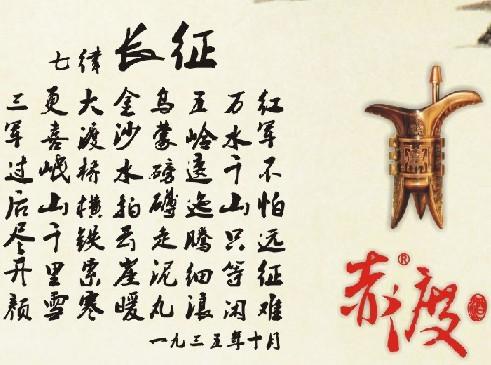 七律 长征
红军不怕远征难
万水千山只等闲
五岭逶迤腾细浪
乌蒙磅礴走泥丸
金沙水拍云崖暖
大渡桥横铁索寒
更喜岷山千里雪
三军过后尽开颜
一九三五年十月
赤渡®
酒